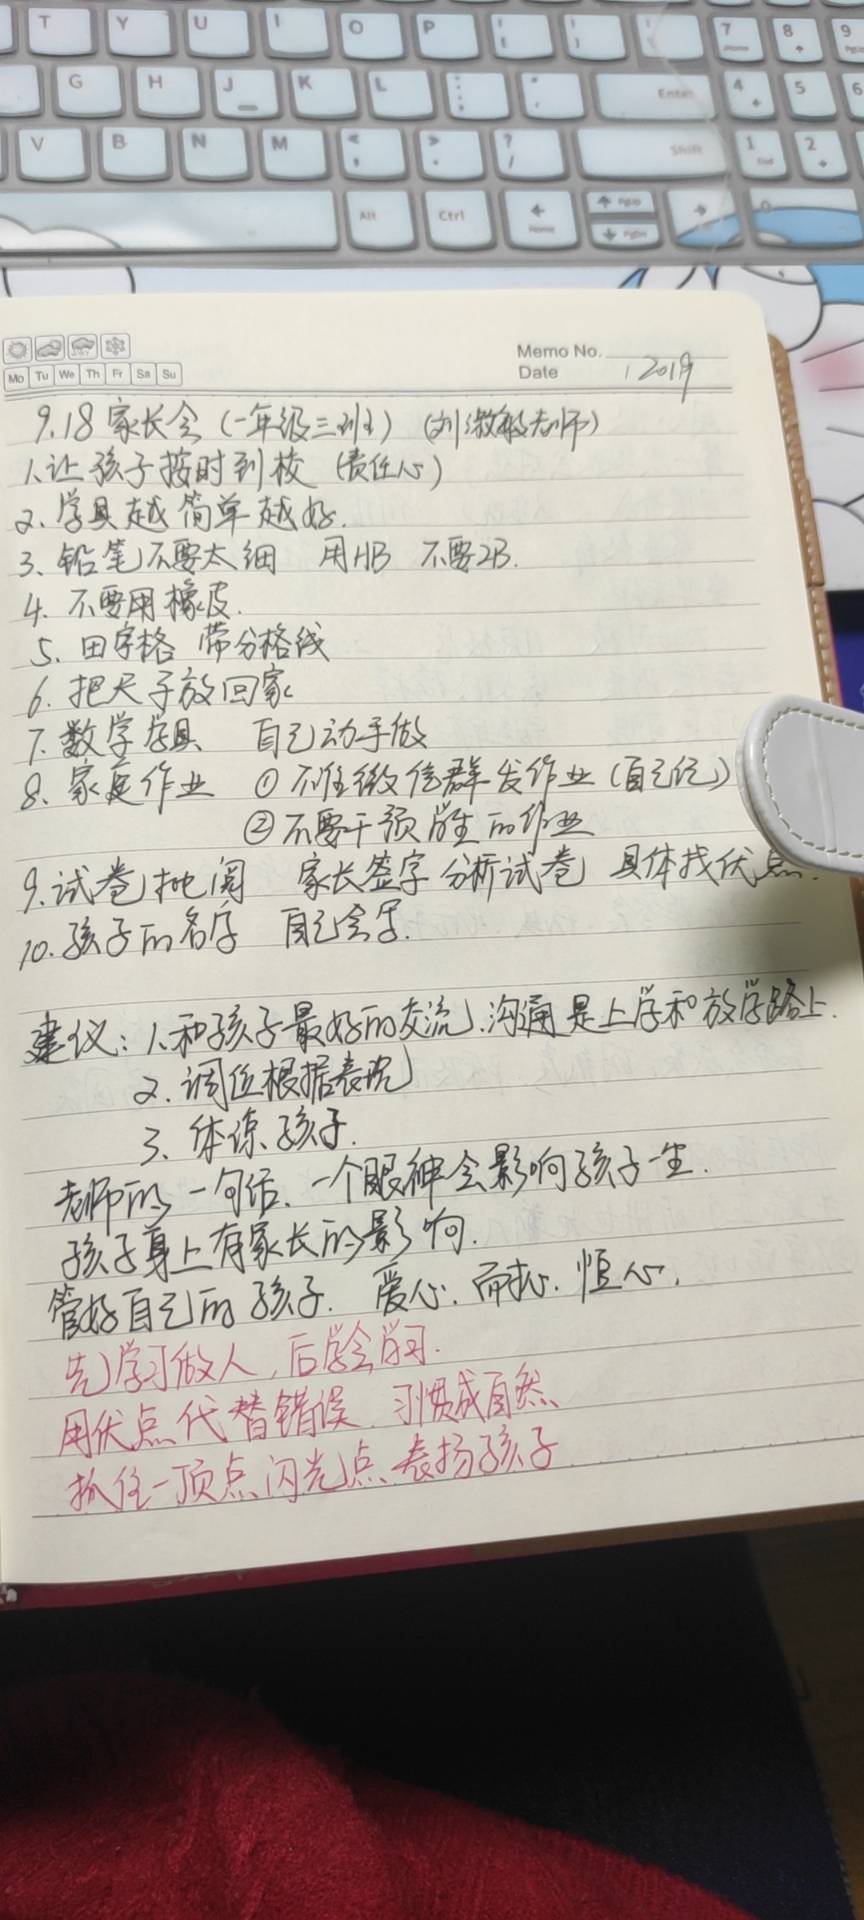 T Y U I O P 7 8 9
G H J K L Enter 4 5 6
V B N M Shift 1 2
Alt Ctrl Home PgUp PgDn
Memo No.
Mo Tu We Th Fr Sa Su
Date 2019
9.18 家长会 (一年级三班) (刘 老师)
1.让孩子按时到校 (责任心)
2.学具越简单越好.
3.铅笔不要太细 用HB 不要2B.
4.不要用橡皮.
5.田字格 带分格线
6.把尺子放回家
7.数学学具 自己动手做
8.家庭作业 ①不往微信群发作业(自己记)
②不要干预学生的作业
9.试卷批阅 家长签字 分析试卷 具体找优点.
10.孩子的名字 自己会写.
建议:1.和孩子最好的交流、沟通是上学和放学路上.
2.调位根据表现
3.体谅孩子.
老师的一句话、一个眼神会影响孩子一生.
孩子身上有家长的影响.
管好自己的孩子. 爱心.耐心.恒心.
先学习做人,后学会学习.
用优点代替错误 习惯成自然
抓住一顶点闪光点 表扬孩子